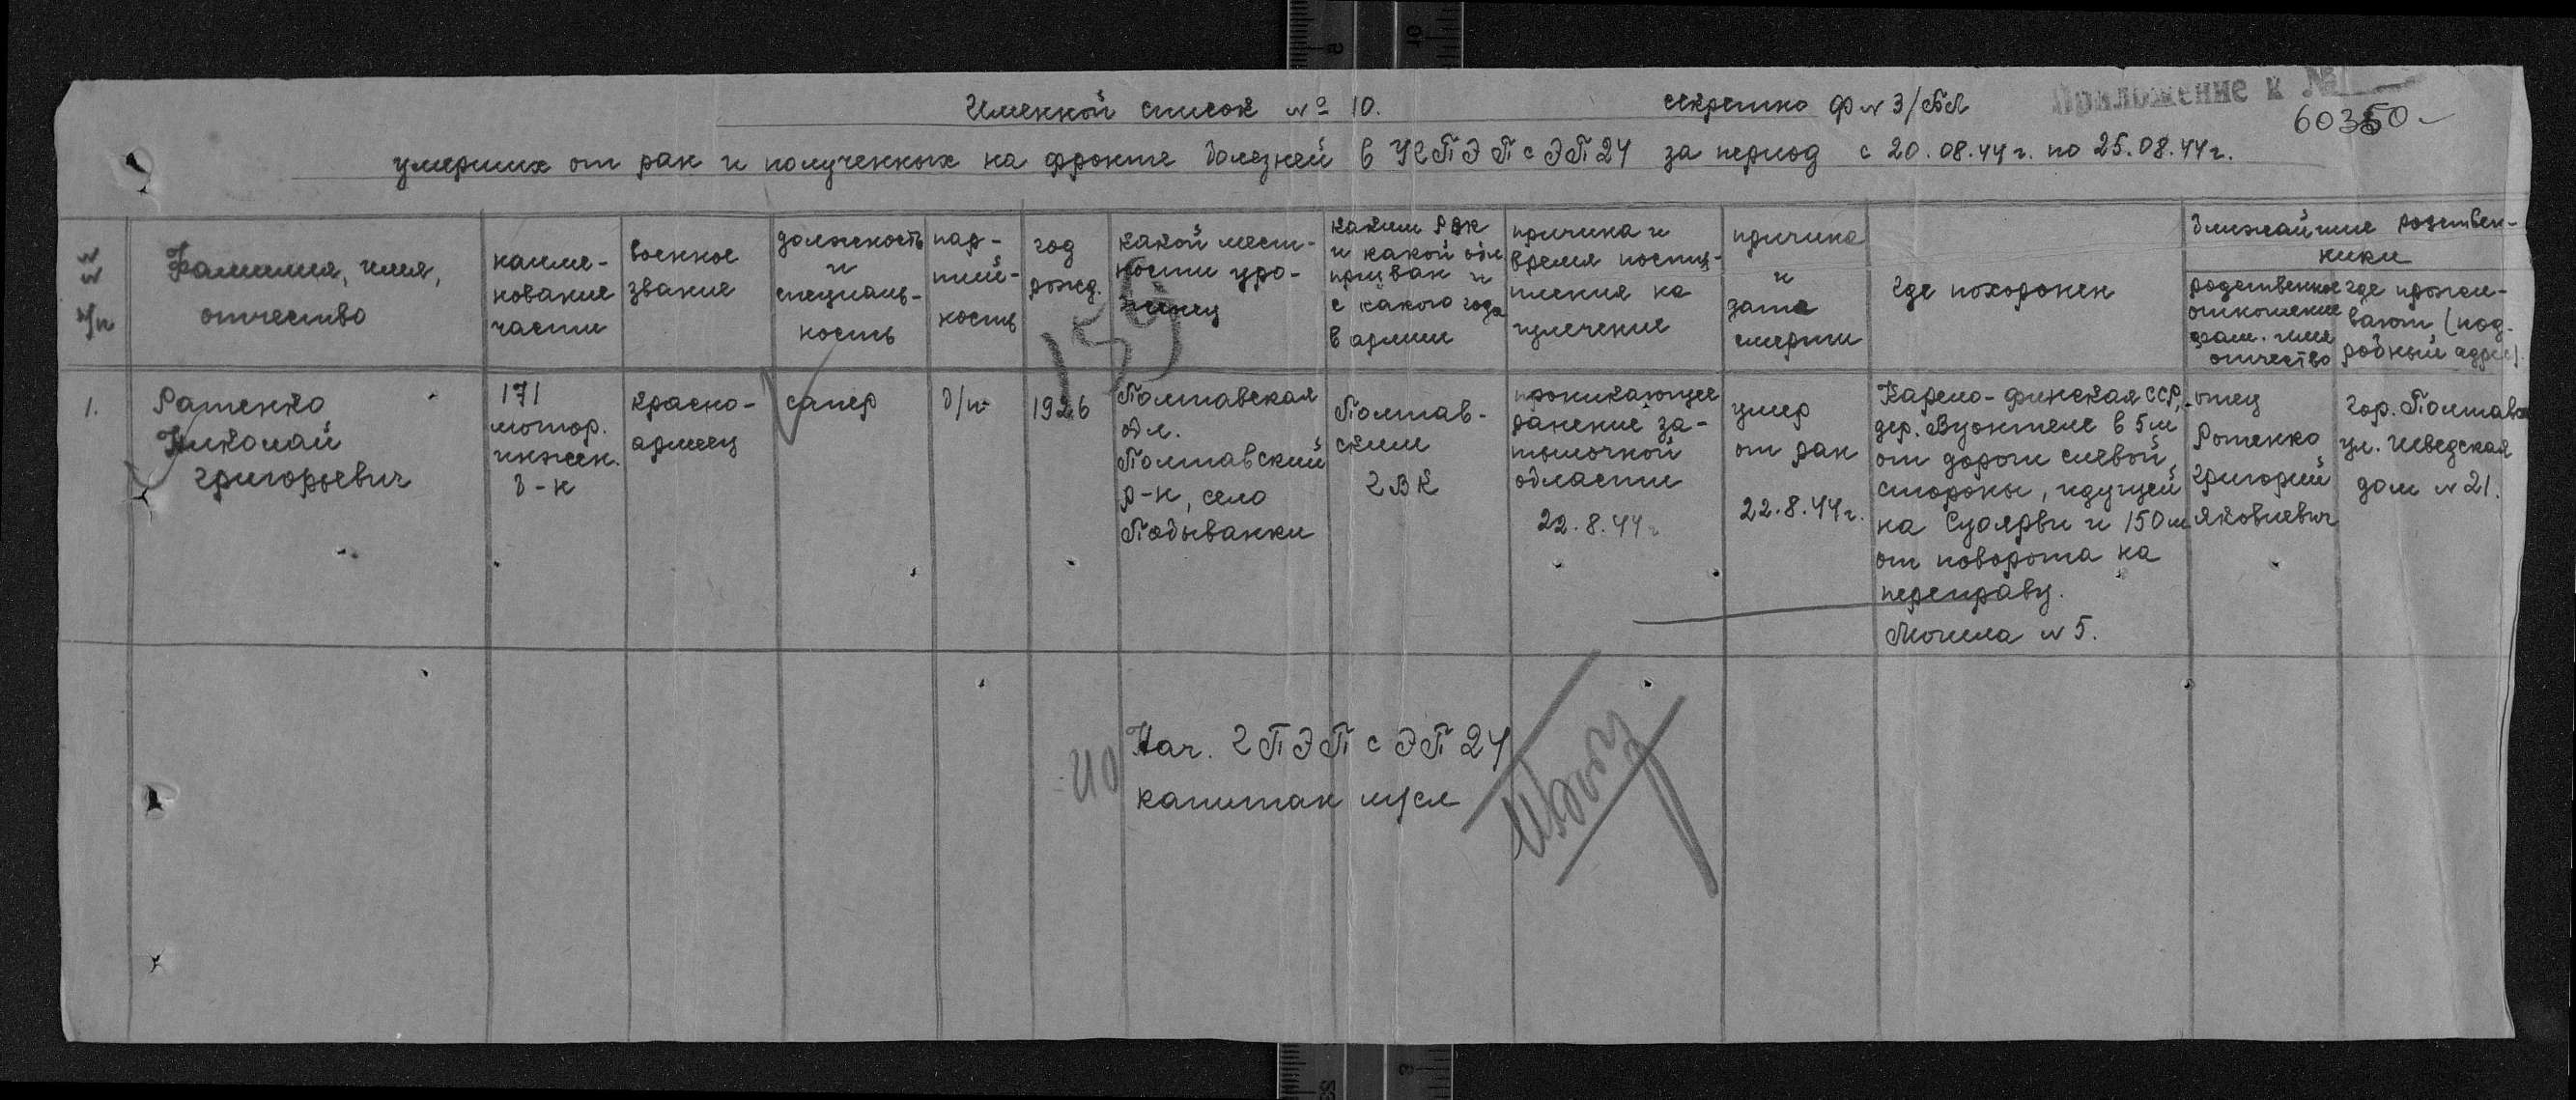 Именной список № 10.
секретно ф №3/БЛ
Приложение к №
60350
умерших от ран и полученных на фронте болезней в ХППЭП с ЭП 24 за период с 20.08.44г. по 25.08.44г.
№ № п/п
Фамилия, имя,
отчество
наиме-
нование
части
военное
звание
должность
и
специаль-
ность
пар-
тий-
ность
год
рожд.
какой мест-
ности уро-
женец
каким РВК
и какой обл
призван и
с какого года
в армии
причина и
время поступ-
ления на
излечение
причина
и
дата
смерти
где похоронен
Ближайшие родствен-
ники
родственное
отношение
фам. имя
отчество
где прожи-
вают (под-
робный адрес).
1.
Ратенко
Николай
Григорьевич
171
мотор.
инжен.
б-н
красно-
армеец
сапер
б/п
1926
Полтавская
обл.
Полтавский
р-н, село
Подыванки
Полтав-
ским
ГВК
проникающее
ранение за-
тылочной
области
22.8.44г
умер
от ран
22.8.44г.
Карело-финская ССР,
дер. Вуонтеле в 5м
от дороги с левой
стороны, идущей
на Суоярви и 150м
от поворота на
переправу.
Могила №5.
отец
Ротенко
Григорий
Яковлевич
гор. Полтава
ул. Шведская
дом №21.
ИО
Нач. ГПЭП с ЭП 24
капитан м/сл